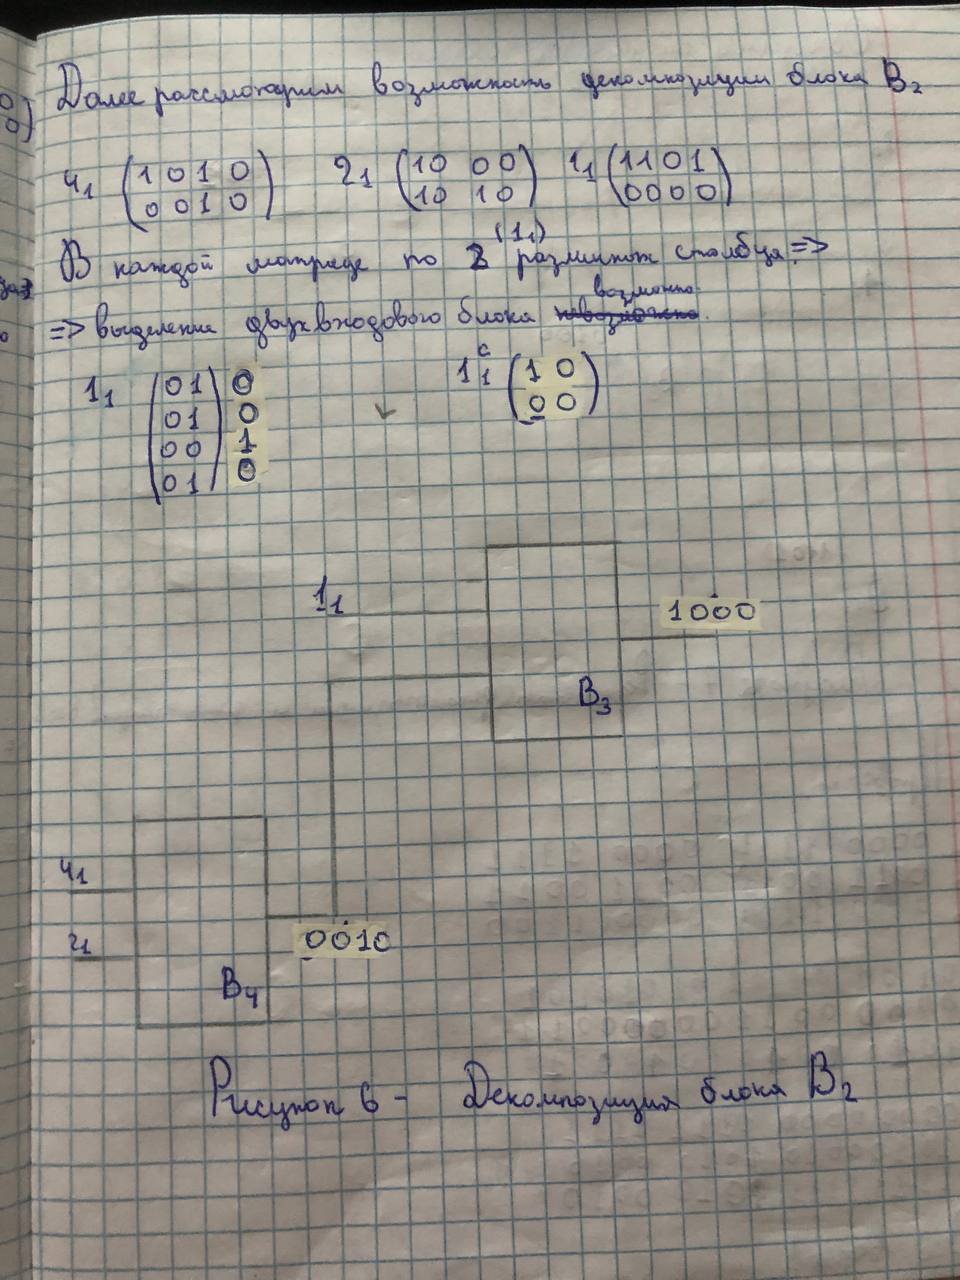 Далее рассмотрим возможность декомпозиции блока B₂
0
0)
ч₁ (1 0 1 0) 2₁ (10 00) 1₁ (1101)
(0 0 1 0) (10 10) (0000)
(1₁)
В каждой матрице по 2 различных столбца =>
возможно
=> выделение двухвходового блока невозможно.
1₁ (01) 0 1₁ᶜ (1 0)
(01) 0 (0 0)
(00) 1
(01) 0
1₁
1000
B₃
ч₁
0010
B₄
Рисунок 6 - Декомпозиция блока B₂